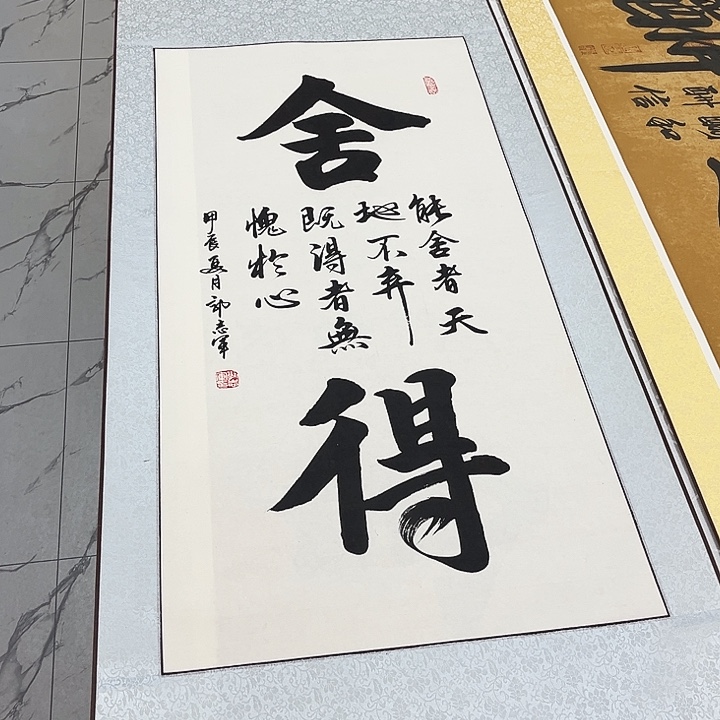 舍
得
能舍者天
地不弃
既得者無
愧於心
甲辰夏月 郭志军
和
信
酬